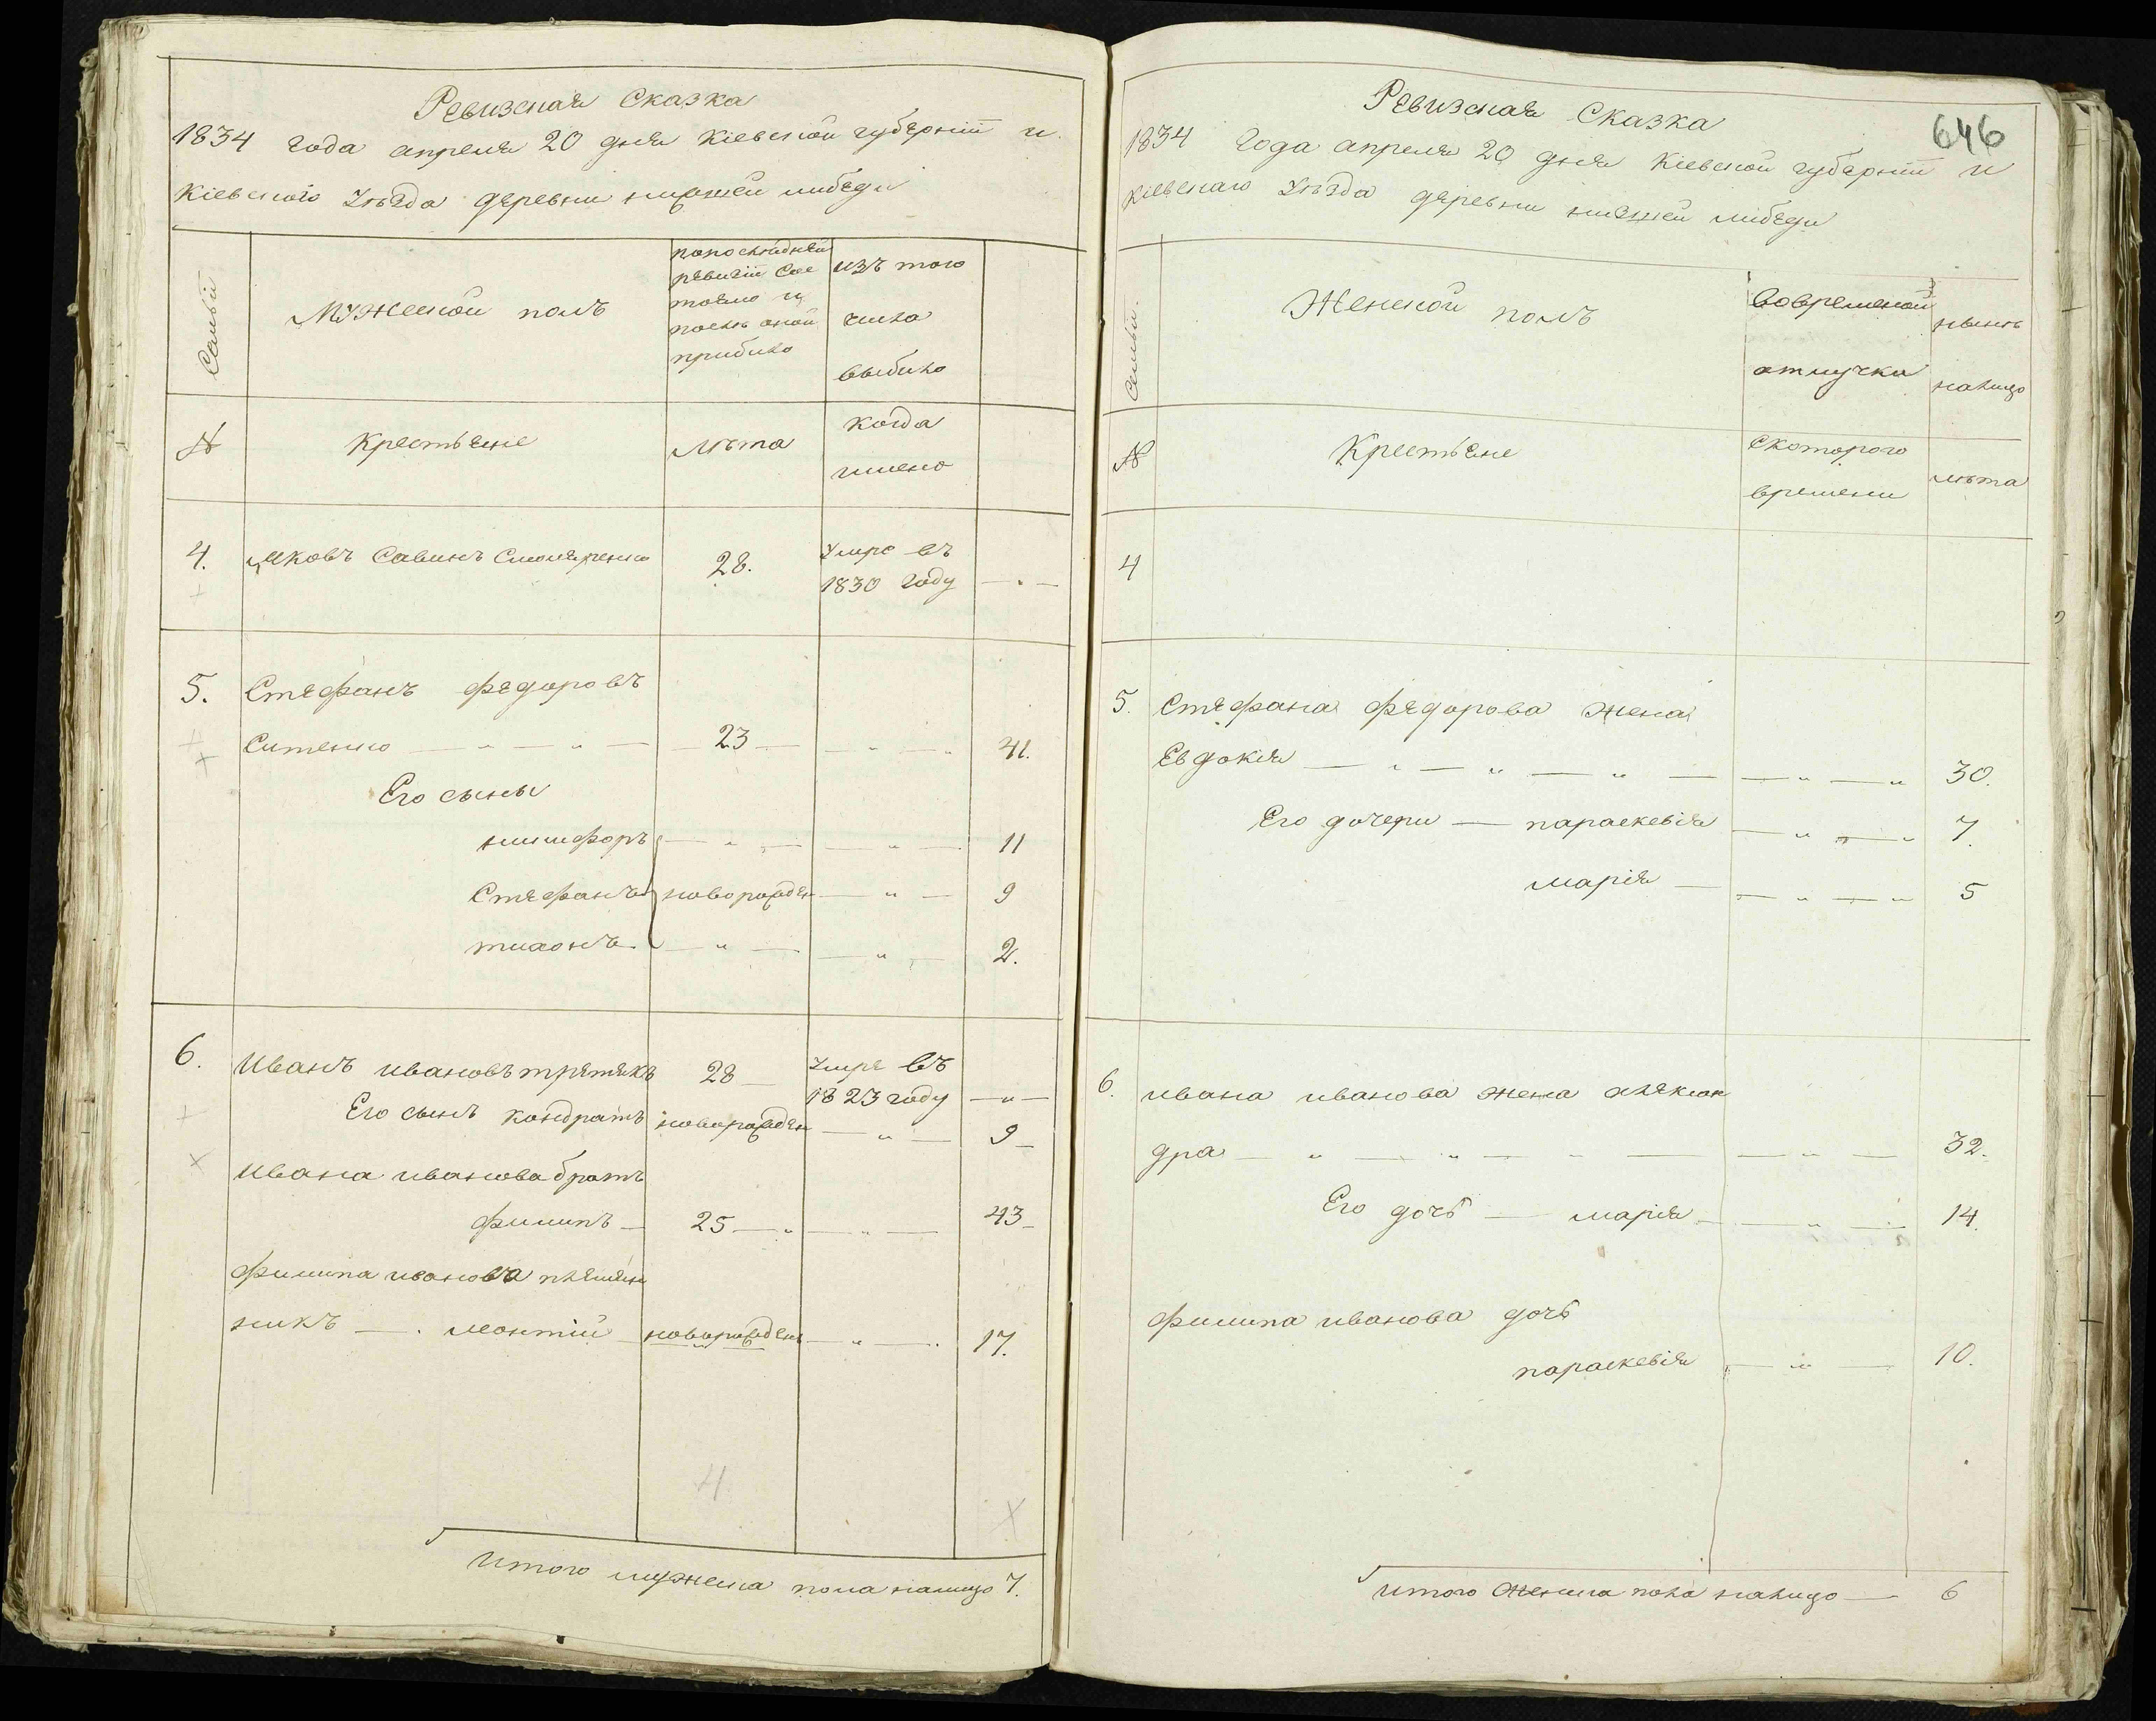 Ревизская Сказка
1834 года апреля 20 дня Кіевской губерніи и
Кіевского Уезда деревни нижней либеди
Семьи
Мужеской полъ
попоследней
ревизіи Сос
тояло и
после оной
прибило
изъ того
числа
выбило
№
Крестьяне
лета
когда
имено
4.
Яковъ Савинъ Смоляренко
28.
Умре въ
1830 году
5.
Стефанъ федоровъ
Ситенко — „ — „ — 23 — — „ — „ 41.
Его сыны
никифоръ — „ — — „ — 11
Стефанъ новорожден — „ — 9
тихонъ — „ — — „ — 2.
6.
Иванъ ивановъ третякъ 28 — Умре въ
1823 году — „ —
Его сынъ кондратъ новорожден — „ — 9 —
Ивана иванова братъ
филипъ — 25 — „ — „ — 43 —
филипа иванова племян
никъ — . леонтій новорожденъ — „ — . 17.
4
Итого мужеска пола налицо 7.
646
Ревизская Сказка
1834 Года апреля 20 дня Кіевской губерніи и
Кіевскаго Уезда деревни нижней либеди
Семьи
Женской полъ
вовременой
отлучки
ныне
налицо
№
Крестьяне
Скоторого
времени
лета
4
5. Стефана федорова жена
Евдокія — „ — „ — „ — — „ — „ 30.
Его дочери — параскевія — „ — „ 7.
марія — — „ — „ 5
6. ивана иванова жена алексан
дра — „ — „ — „ — — „ — 32.
Его дочь — марія — — „ — 14.
филипа иванова дочь
параскевія — „ — 10.
Итого женска пола налицо — 6